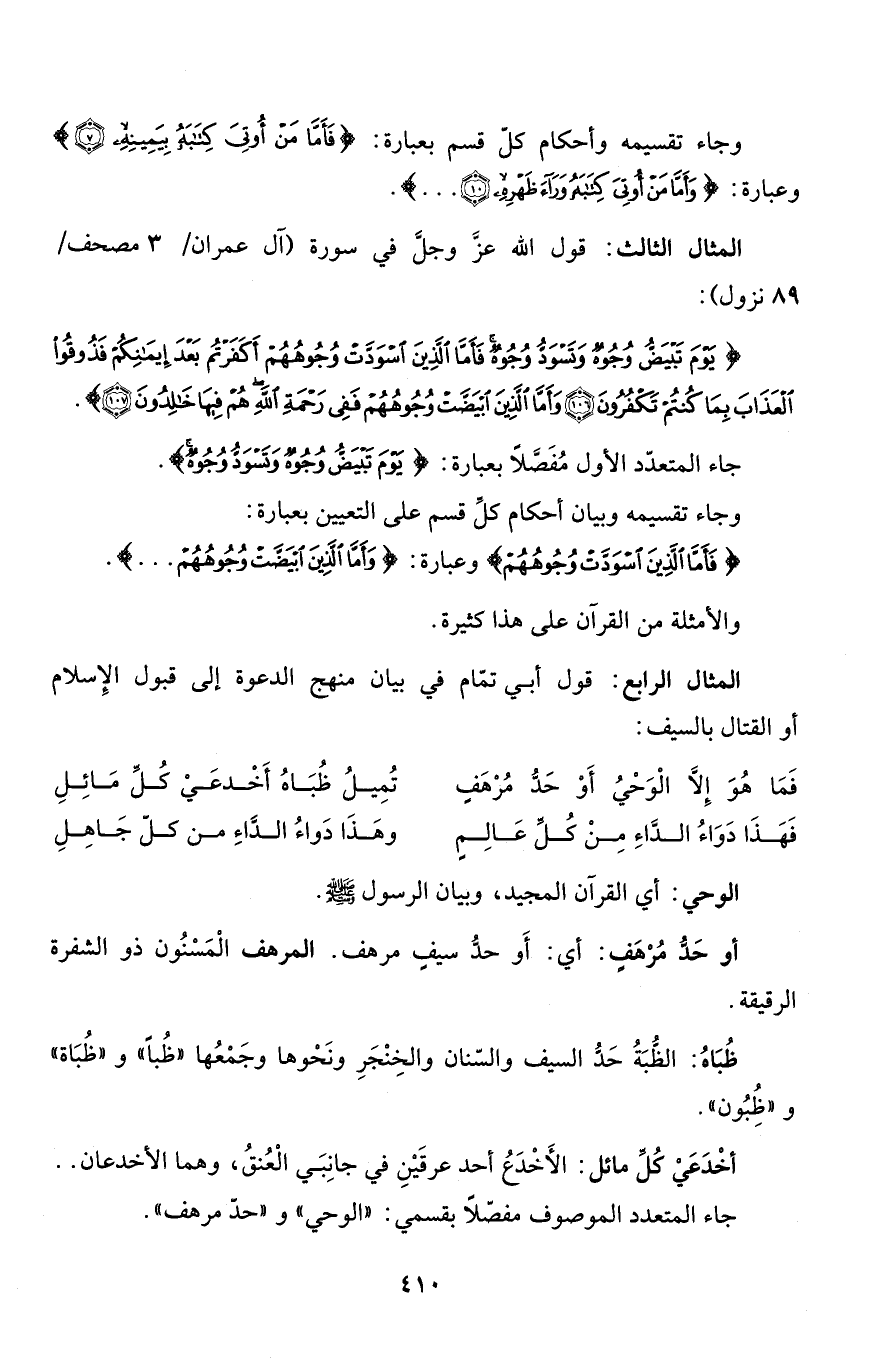 وجاء تقسيمه وأحكام كلّ قسم بعبارة: ﴿فَأَمَّا مَنْ أُوتِيَ كِتَٰبَهُۥ بِيَمِينِهِۦ ٧﴾
وعبارة: ﴿وَأَمَّا مَنْ أُوتِيَ كِتَٰبَهُۥ وَرَآءَ ظَهْرِهِۦ ١٠ ...﴾.
المثال الثالث: قول الله عزَّ وجلَّ في سورة (آل عمران/ ٣ مصحف/
٨٩ نزول):
﴿يَوْمَ تَبْيَضُّ وُجُوهٌ وَتَسْوَدُّ وُجُوهٌ ۚ فَأَمَّا ٱلَّذِينَ ٱسْوَدَّتْ وُجُوهُهُمْ أَكَفَرْتُم بَعْدَ إِيمَٰنِكُمْ فَذُوقُوا۟
ٱلْعَذَابَ بِمَا كُنتُمْ تَكْفُرُونَ ١٠٦ وَأَمَّا ٱلَّذِينَ ٱبْيَضَّتْ وُجُوهُهُمْ فَفِى رَحْمَةِ ٱللَّهِ ۖ هُمْ فِيهَا خَٰلِدُونَ ١٠٧﴾.
جاء المتعدّد الأول مُفَصَّلاً بعبارة: ﴿يَوْمَ تَبْيَضُّ وُجُوهٌ وَتَسْوَدُّ وُجُوهٌ ۚ﴾.
وجاء تقسيمه وبيان أحكام كلِّ قسم على التعيين بعبارة:
﴿فَأَمَّا ٱلَّذِينَ ٱسْوَدَّتْ وُجُوهُهُمْ﴾ وعبارة: ﴿وَأَمَّا ٱلَّذِينَ ٱبْيَضَّتْ وُجُوهُهُمْ...﴾.
والأمثلة من القرآن على هذا كثيرة.
المثال الرابع: قول أبي تمّام في بيان منهج الدعوة إلى قبول الإسلام
أو القتال بالسيف:
فَمَا هُوَ إِلاَّ الْوَحْيُ أَوْ حَدُّ مُرْهَفٍ تُمِيلُ ظُبَاهُ أَخْدعَيْ كُلِّ مَائِلِ
فَهَذَا دَوَاءُ الدَّاءِ مِنْ كُلِّ عَالِمٍ وهَذَا دواءُ الدَّاءِ من كلّ جَاهِلِ
الوحي: أي القرآن المجيد، وبيان الرسول ﷺ.
أو حَدُّ مُرْهَفٍ: أي: أَو حدُّ سيفٍ مرهف. المرهف الْمَسْنُون ذو الشفرة
الرقيقة.
ظُبَاهُ: الظُّبَةُ حَدُّ السيف والسّنان والخِنْجَرِ ونَحْوها وجَمْعُها «ظُباً» و «ظُبَاة»
و «ظِبُون».
أخْدَعَيْ كُلِّ مائل: الأَخْدَعُ أحد عرقَيْنِ في جانِبَي الْعُنقُ، وهما الأخدعان..
جاء المتعدد الموصوف مفصّلاً بقسمي: «الوحي» و «حدّ مرهف».
٤١٠